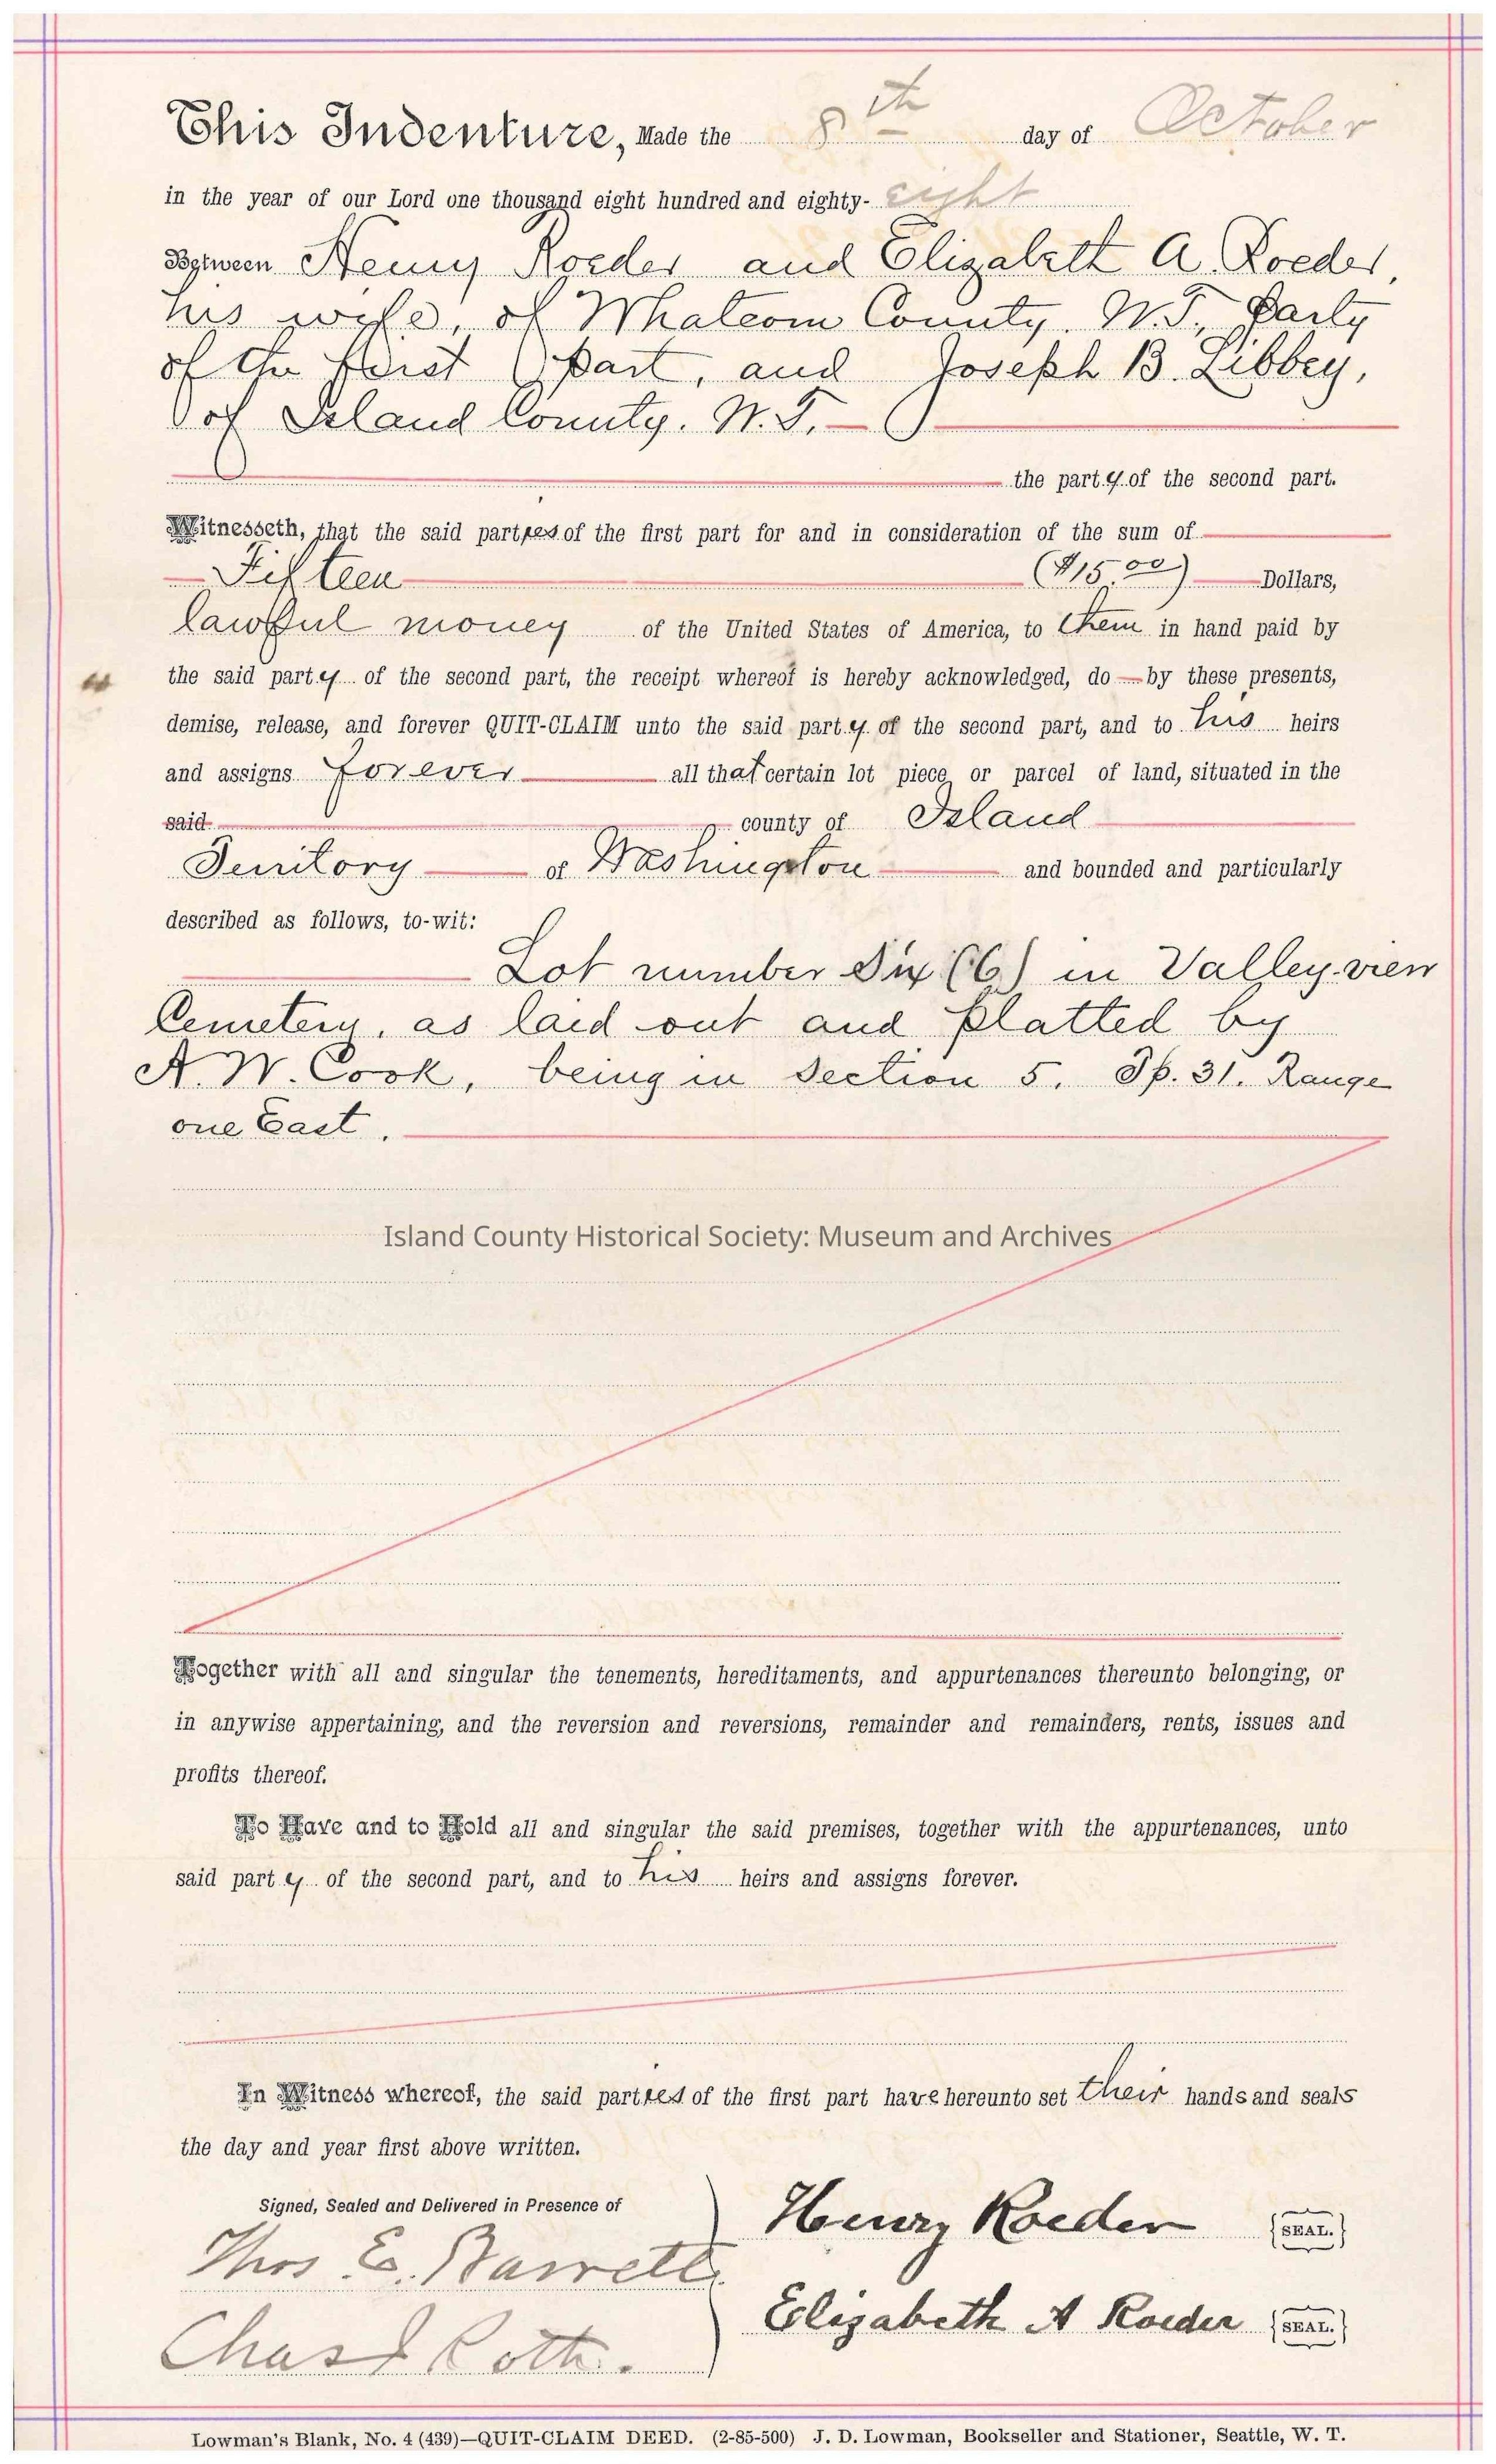 This Indenture, Made the 8th day of October
in the year of our Lord one thousand eight hundred and eighty-eight
Between Henry Roeder and Elizabeth A. Roeder,
his wife, of Whatcom County. W.T., Party
of the first part, and Joseph B. Libbey,
of Island County. W.T.
the party of the second part.
Witnesseth, that the said parties of the first part for and in consideration of the sum of
Fifteen ($15.00) Dollars,
lawful money of the United States of America, to them in hand paid by
the said party of the second part, the receipt whereof is hereby acknowledged, do by these presents,
demise, release, and forever QUIT-CLAIM unto the said party of the second part, and to his heirs
and assigns forever all that certain lot piece or parcel of land, situated in the
said county of Island
Territory of Washington and bounded and particularly
described as follows, to-wit:
Lot number Six (6) in Valley view
Cemetery, as laid out and platted by
A. W. Cook, being in Section 5. Tp. 31. Range
one East.
Island County Historical Society: Museum and Archives
Together with all and singular the tenements, hereditaments, and appurtenances thereunto belonging, or
in anywise appertaining, and the reversion and reversions, remainder and remainders, rents, issues and
profits thereof.
To Have and to Hold all and singular the said premises, together with the appurtenances, unto
said party of the second part, and to his heirs and assigns forever.
In Witness whereof, the said parties of the first part have hereunto set their hands and seals
the day and year first above written.
Signed, Sealed and Delivered in Presence of
Henry Roeder {SEAL.}
Thos E. Barrett
Elizabeth A Roeder {SEAL.}
Chas I Roth.
Lowman's Blank, No. 4 (439)—QUIT-CLAIM DEED. (2-85-500) J. D. Lowman, Bookseller and Stationer, Seattle, W. T.